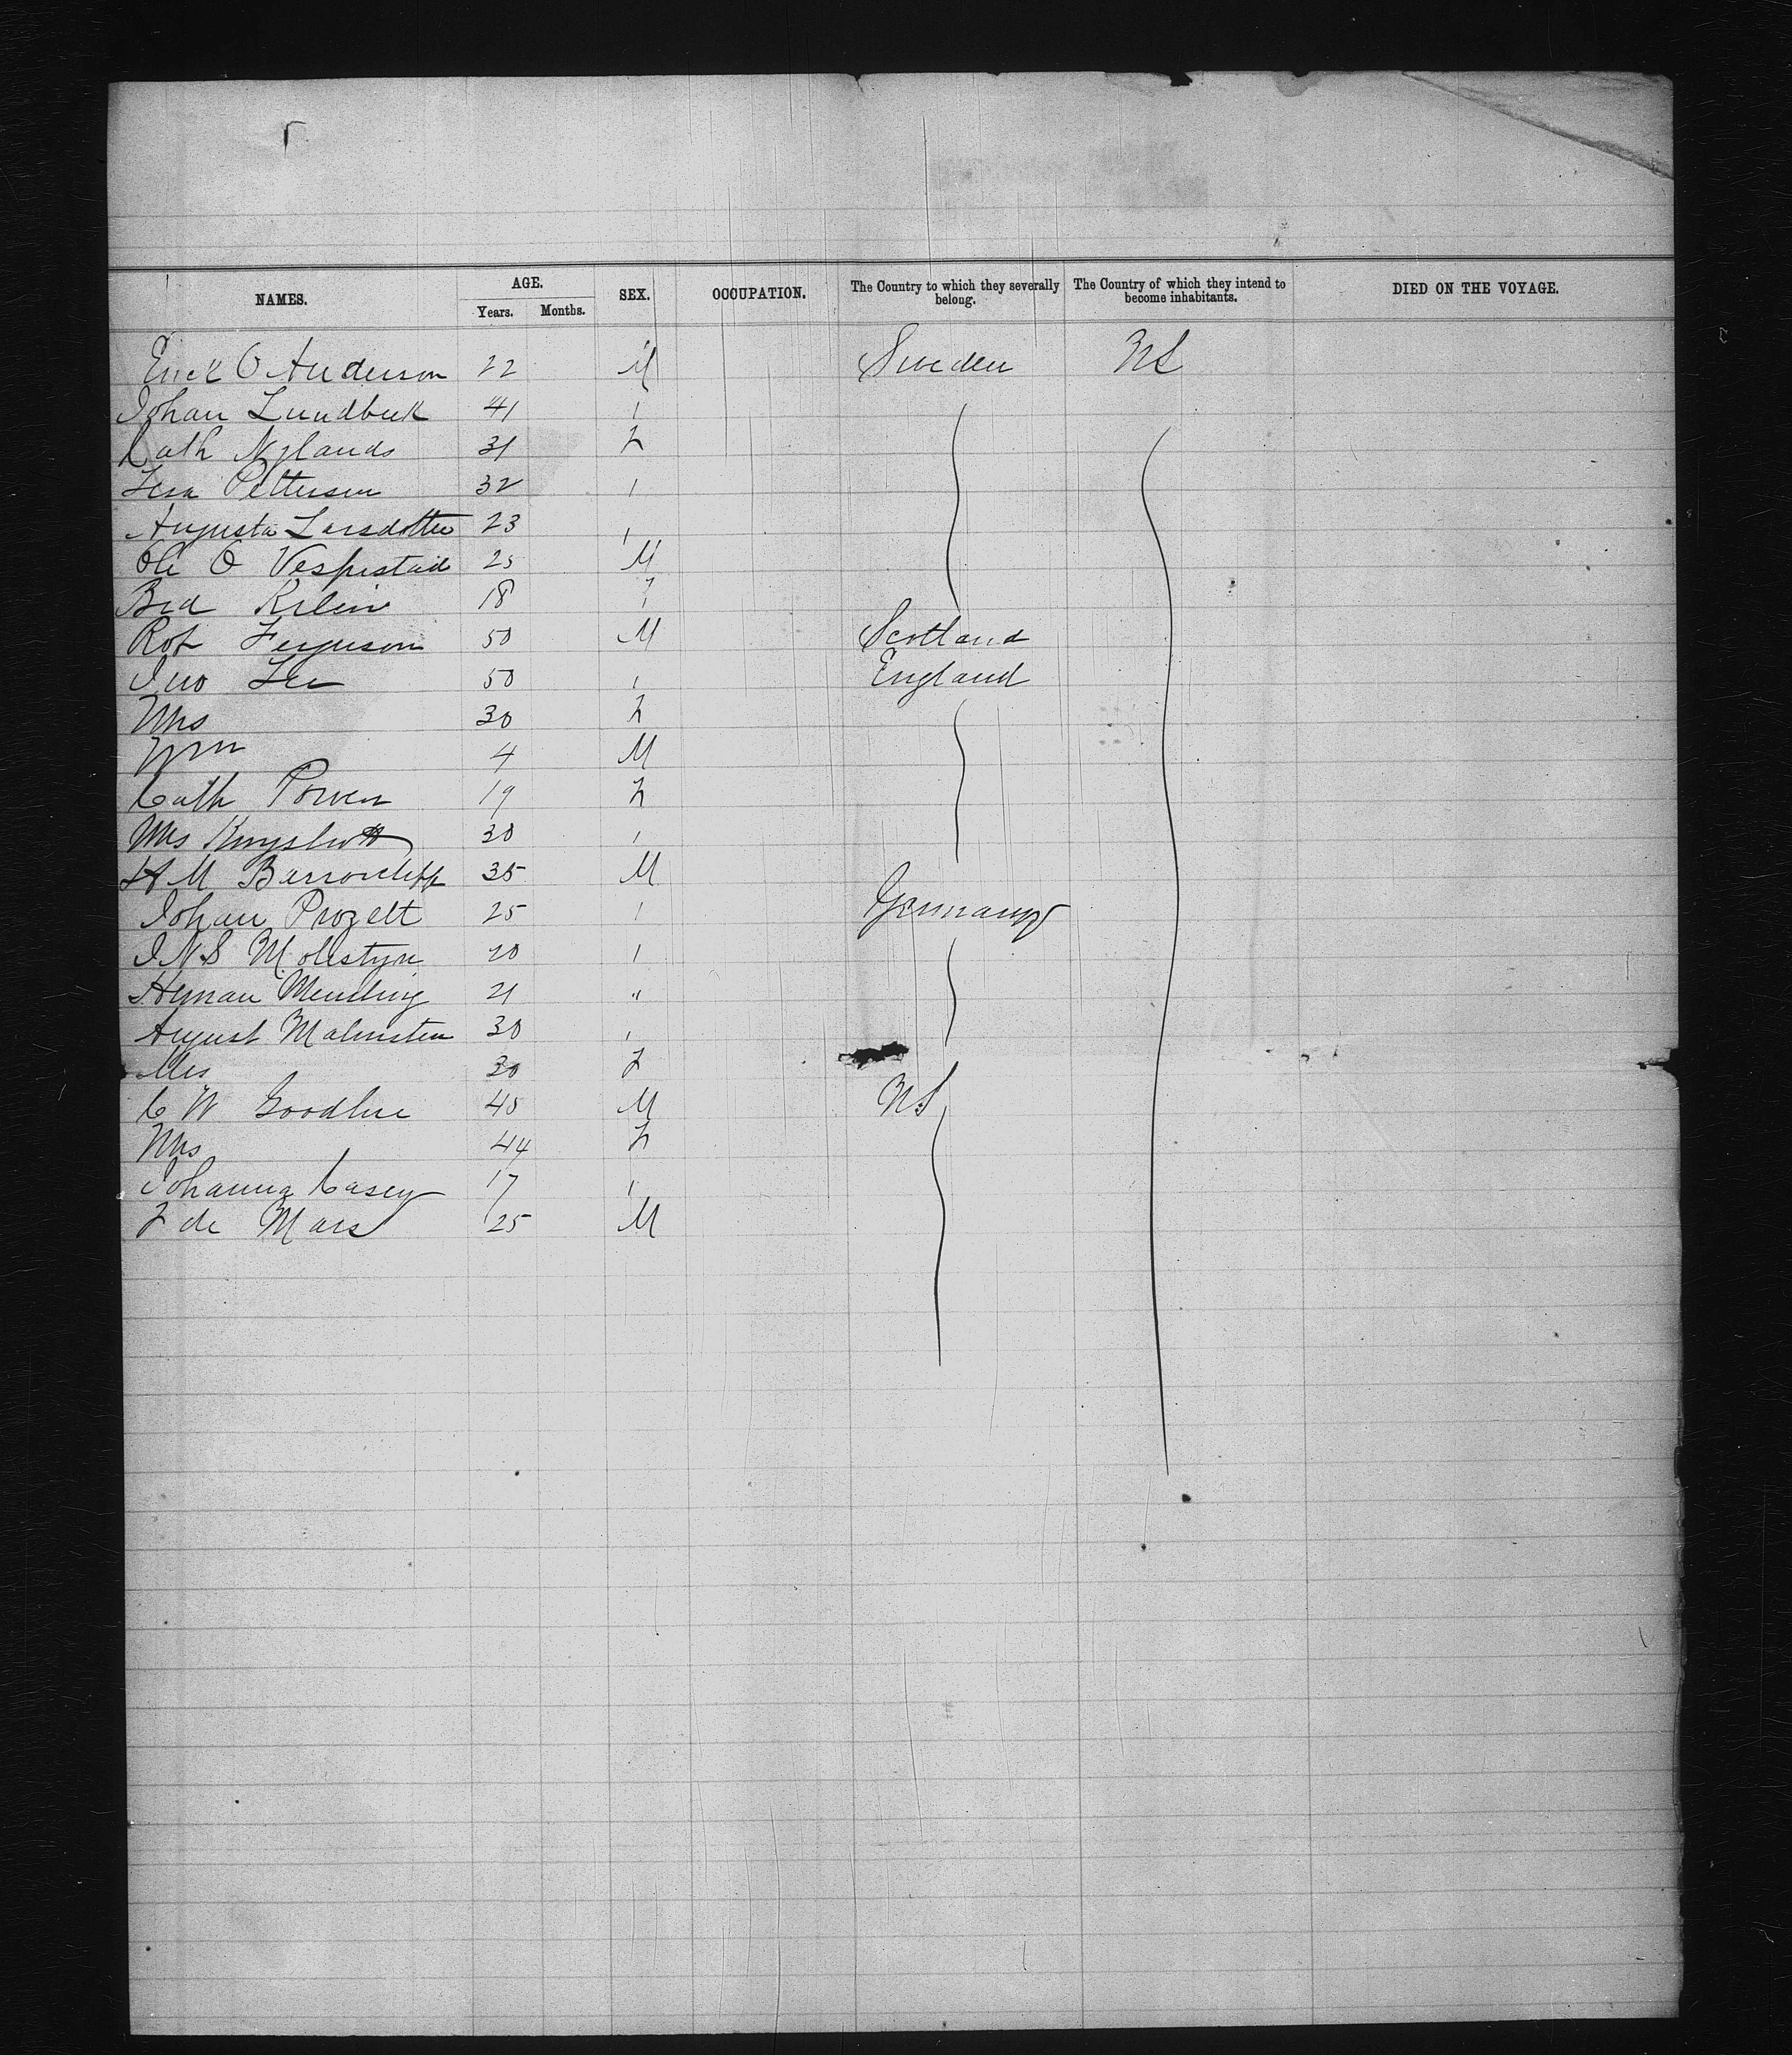 NAMES. AGE. SEX. OCCUPATION. The Country to which they severally belong. The Country of which they intend to become inhabitants. DIED ON THE VOYAGE.
Years. Months.
Erick O Anderson 22 M Sweden US
Johan Lundbeck 41 "
Cath Nylands 31 F
Lisa Pettersen 32 "
Augusta Larsdotter 23 "
Ole O Vespestad 25 M
Brd 18 F
Rob Ferguson 50 M Scotland
Jno Lee 50 " England
Mrs 30 F
Wm 4 M
Cath Power 19 F
Mrs 30 "
H M Barrowcliff 35 M
Johan Prozelt 25 " Germany
J N S Molestyn 20 "
Hyman 21 "
August Malmsten 30 "
Mrs 30 F
C W 45 M US
Mrs 44 F
Johanna Casey 17 "
F de Mars 25 M